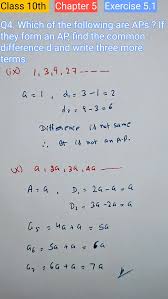 Class 10th Chapter 5 Exercise 5.1
Q4. Which of the following are APs ? If
they form an AP, find the common
difference d and write three more
terms.
(ix) 1, 3, 9, 27 ----
a = 1 , d₁ = 3-1 = 2
d₂ = 9-3 = 6
Difference is not same
∴ It is not an A.P.
(x) a, 2a, 3a, 4a ----
A = a , D₁ = 2a - a = a
D₂ = 3a - 2a = a
a₅ = 4a + a = 5a
a₆ = 5a + a = 6a
a₇ = 6a + a = 7a